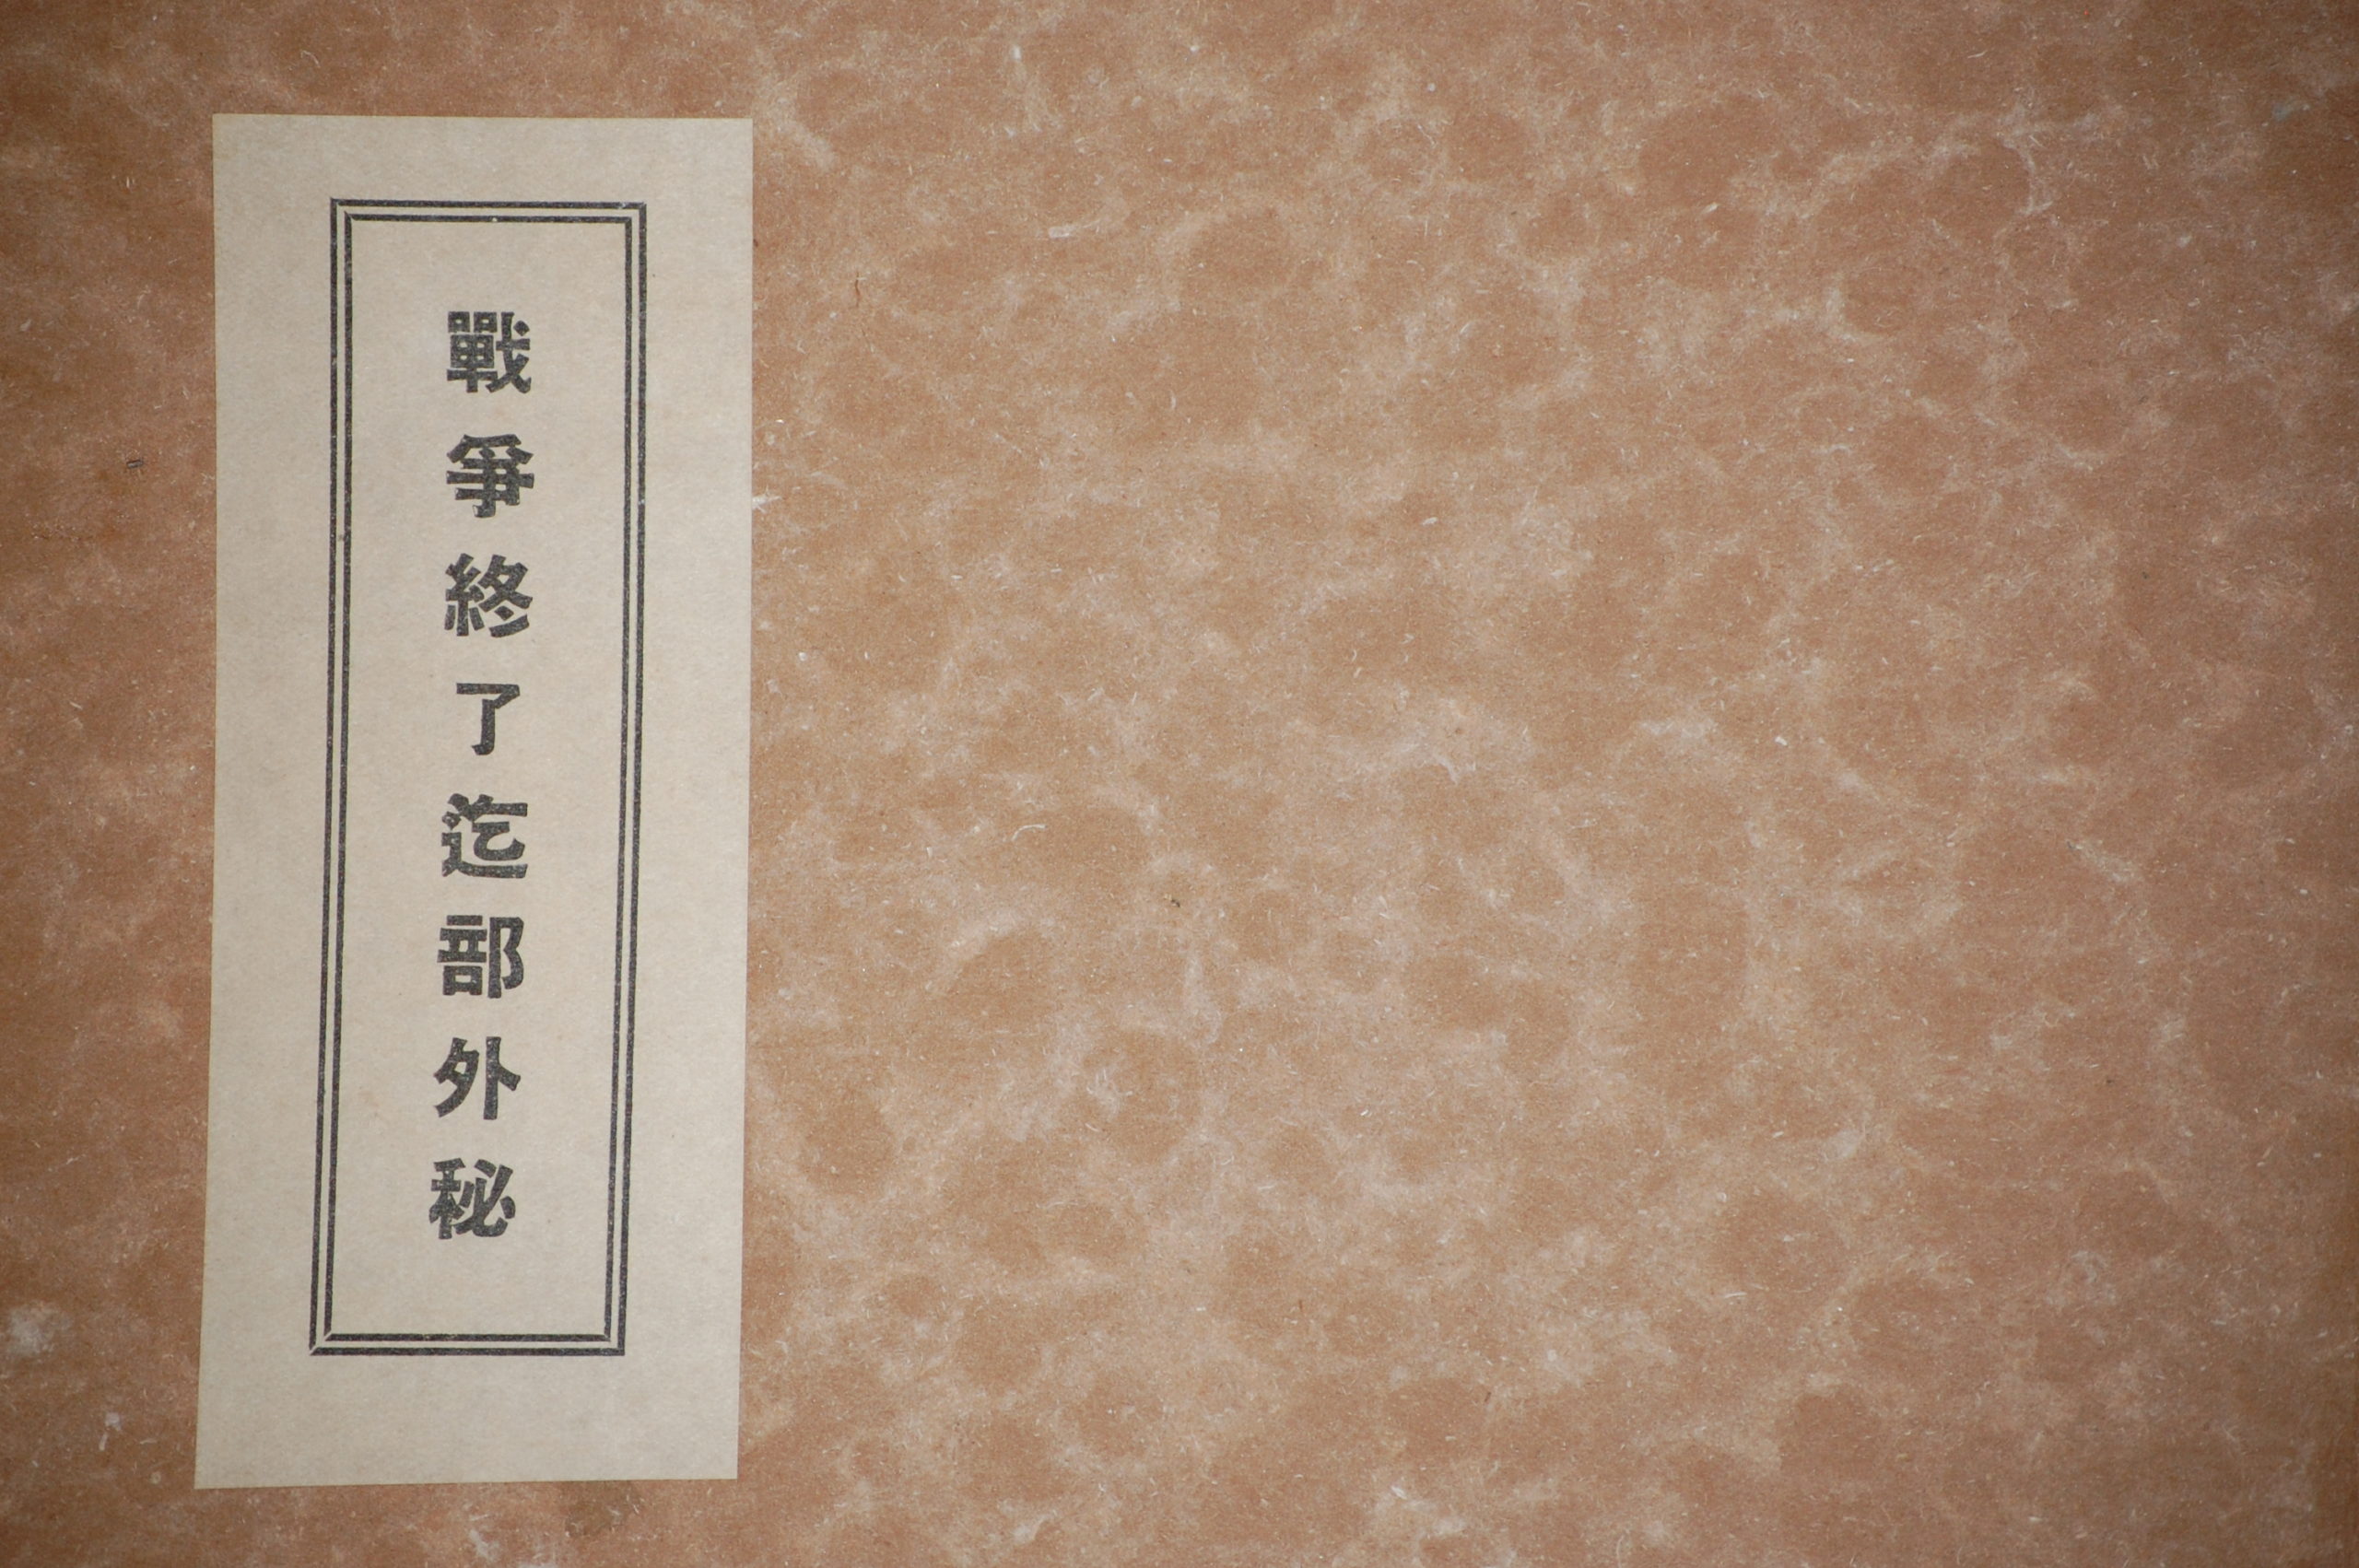 戰爭終了迄部外秘